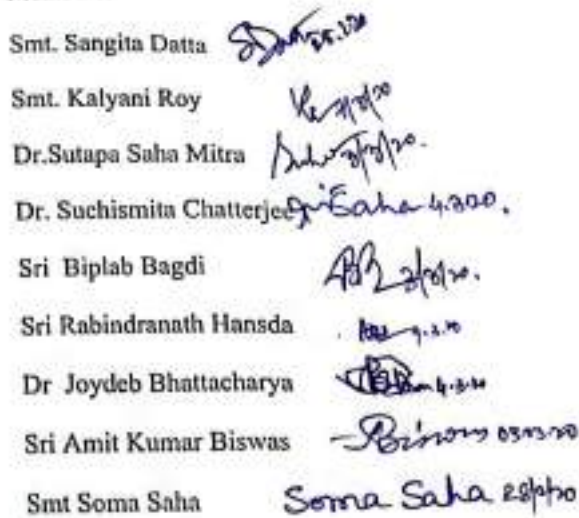 Smt. Sangita Datta
Smt. Kalyani Roy
Dr.Sutapa Saha Mitra 3/3/20.
Dr. Suchismita Chatterjee Saha 4.3.20.
Sri Biplab Bagdi 3/3/20.
Sri Rabindranath Hansda
Dr Joydeb Bhattacharya 4.3.20
Sri Amit Kumar Biswas Biswas 03.03.20
Smt Soma Saha Soma Saha 28/2/20